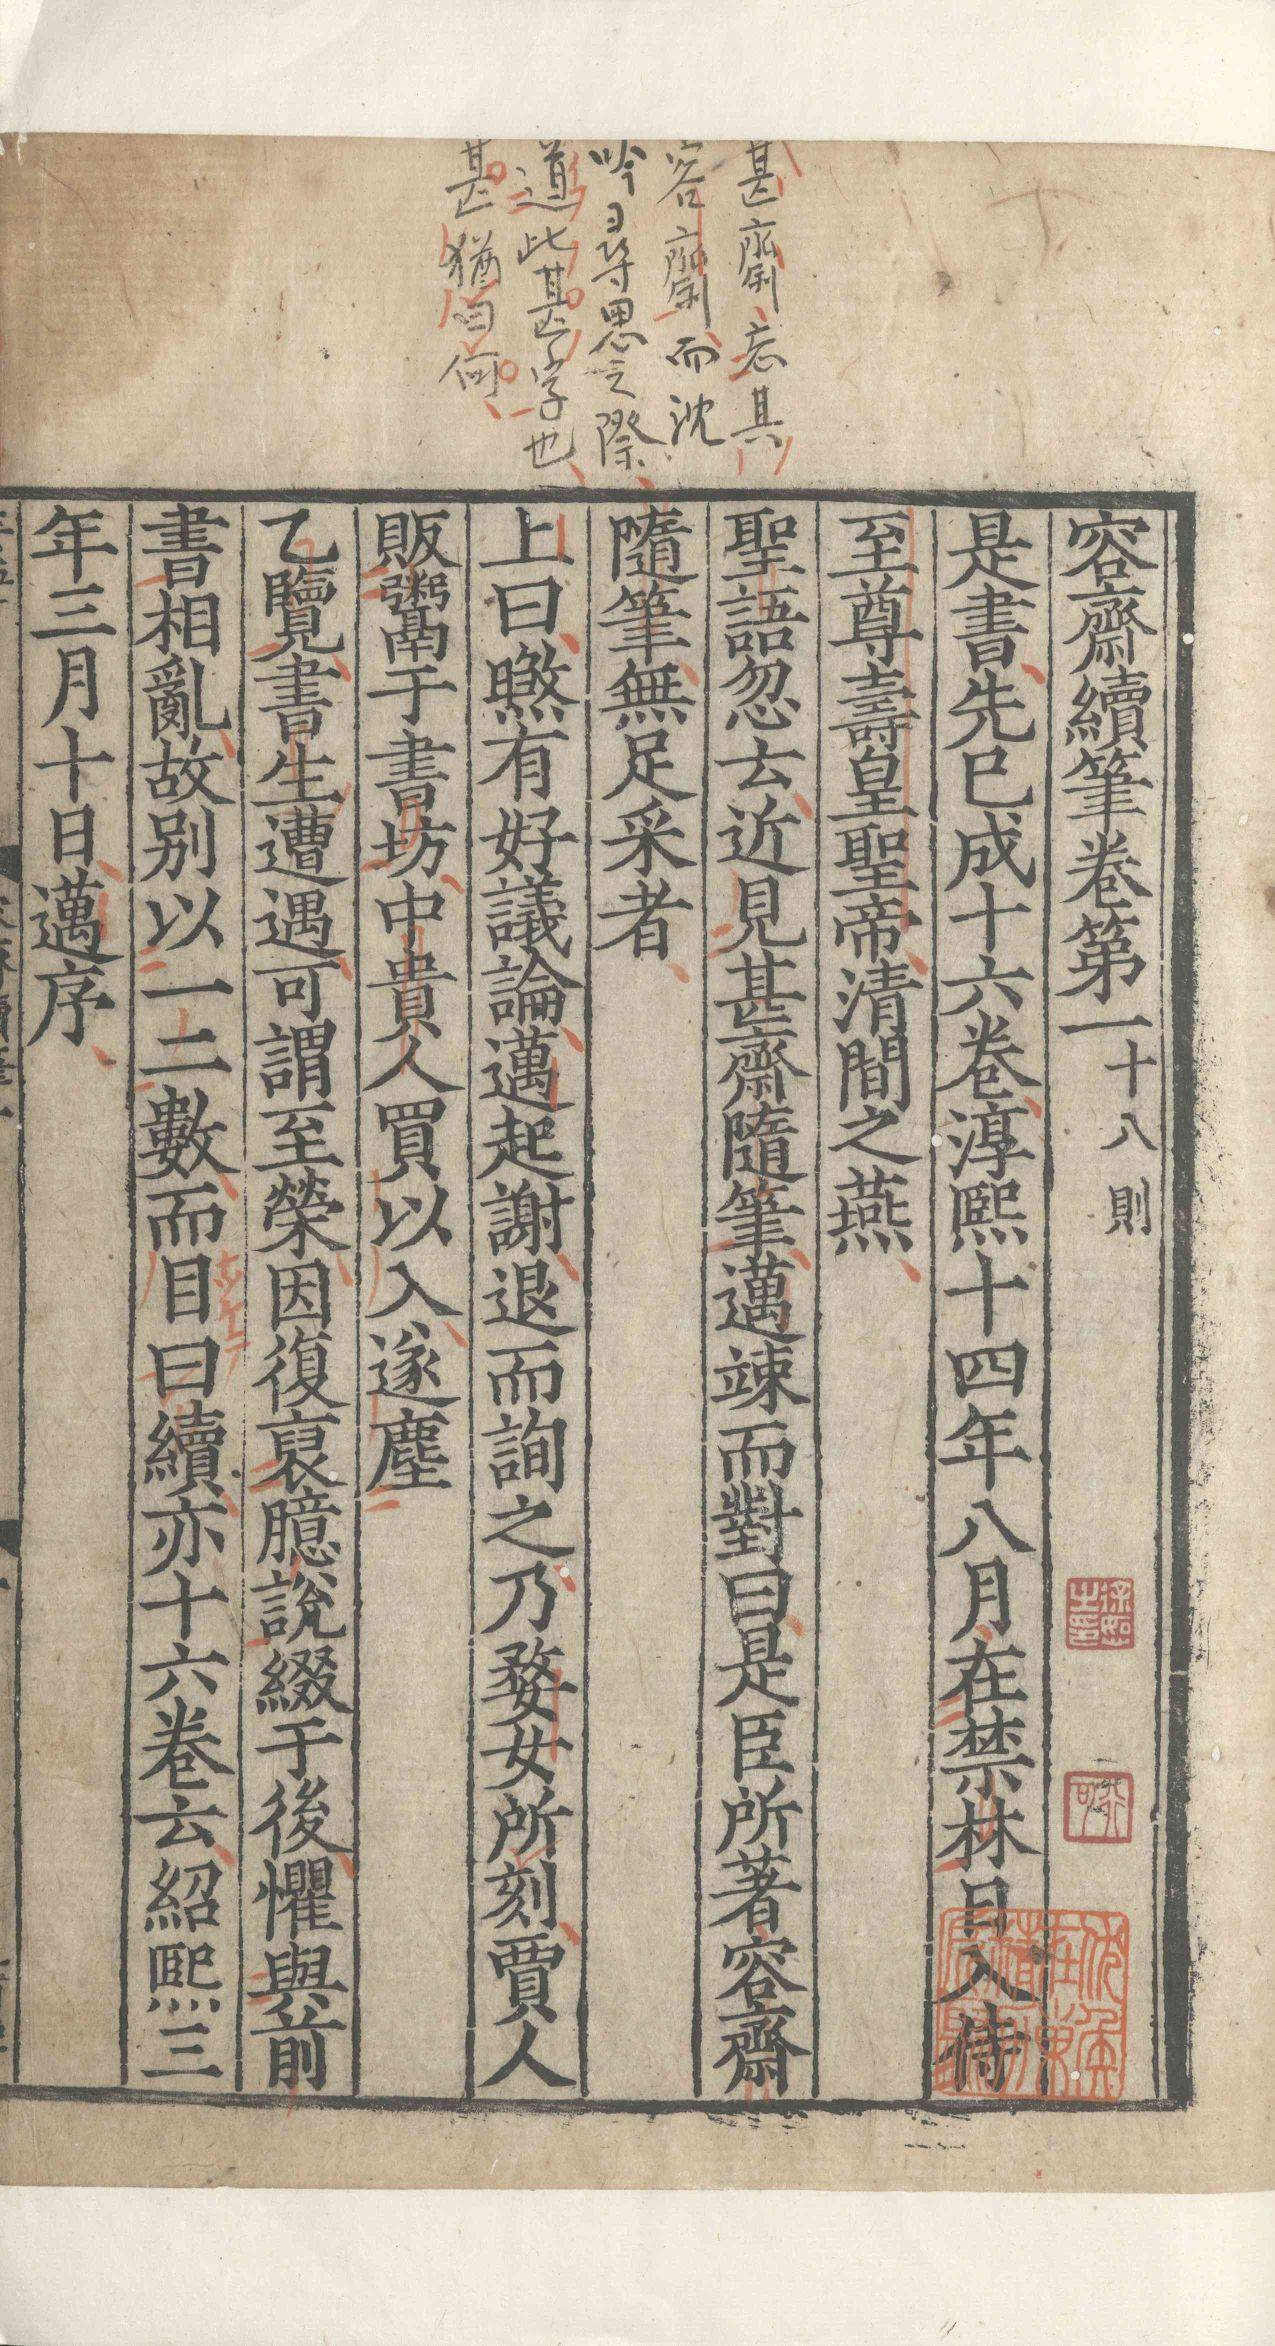 甚齋忘其
容齋而沈
吟日等思之際
道此甚字也
甚猶曰何
容齋續筆卷第一十八則
是書先已成十六卷淳熙十四年八月在禁林日入侍
至尊壽皇聖帝清閒之燕
聖語忽云近見甚齋隨筆邁竦而對曰是臣所著容齋
隨筆無足采者
上曰㬠有好議論邁起謝退而詢之乃婺女所刻賈人
販鬻于書坊中貴人買以入遂塵
乙覽書生遭遇可謂至榮因復裒臆說綴于後懼與前
書相亂故別以一二數而目曰續亦十六卷云紹熙三
年三月十日邁序